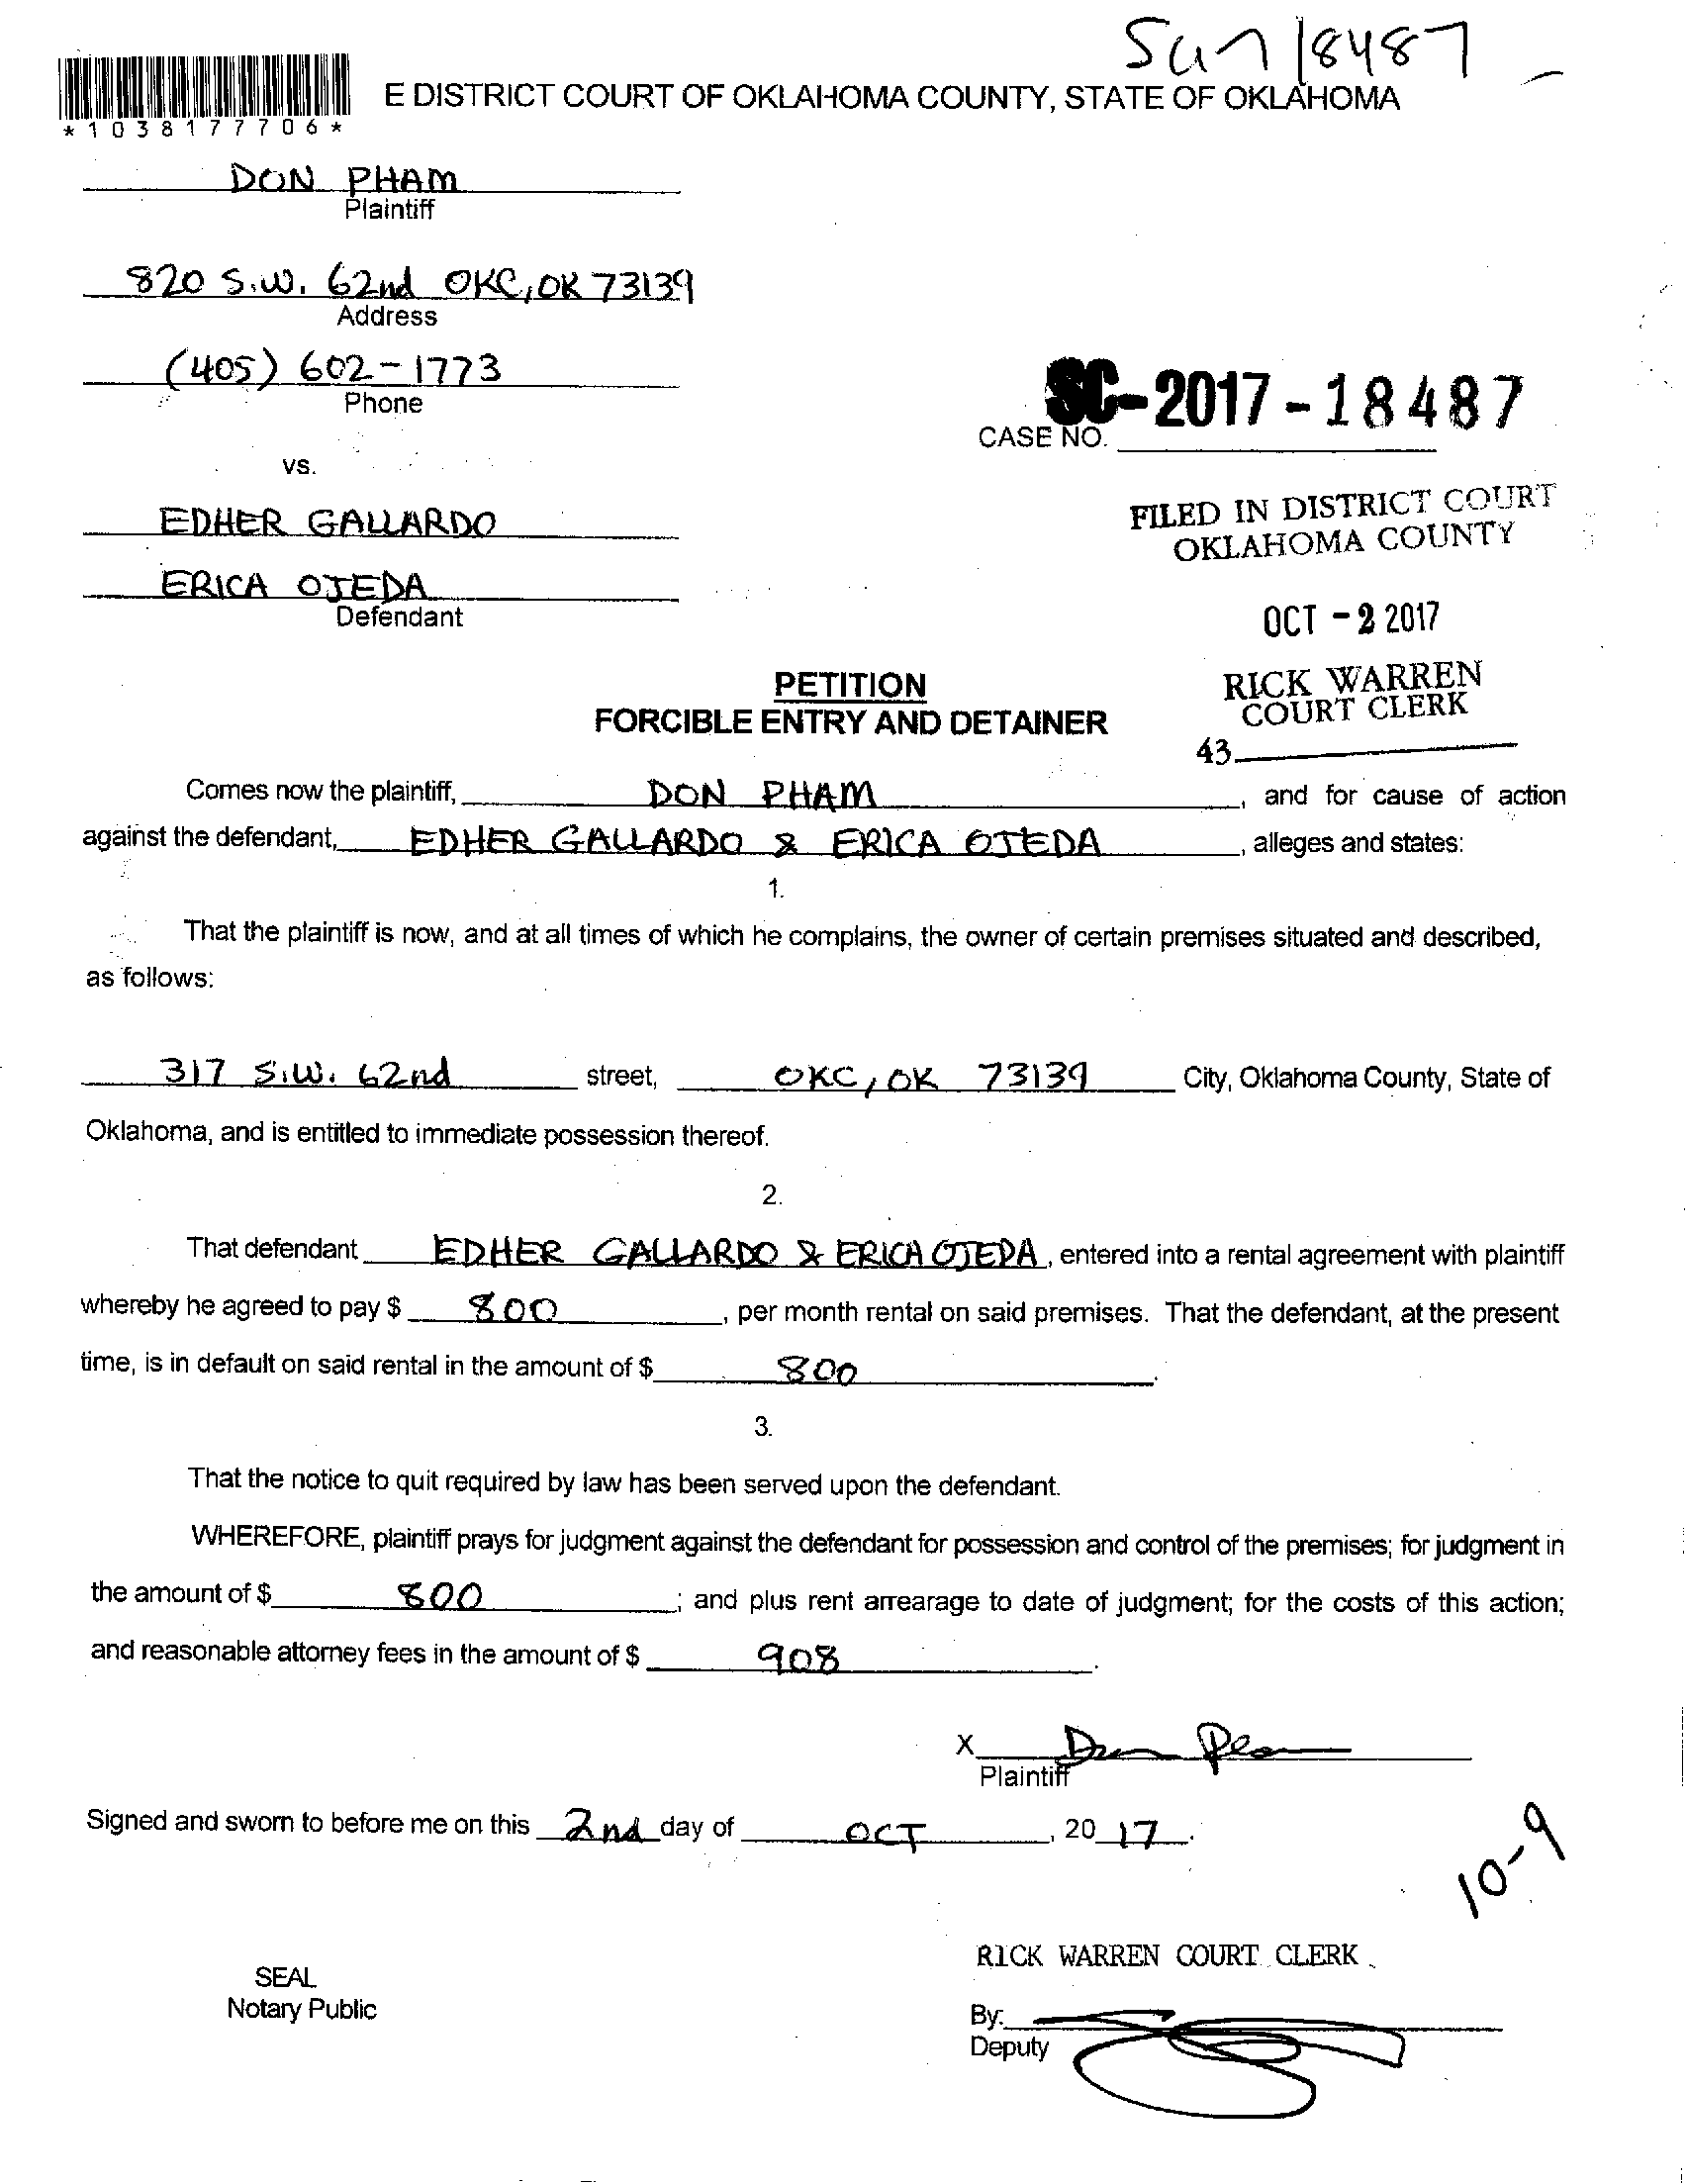 SC17 18487
E DISTRICT COURT OF OKLAHOMA COUNTY, STATE OF OKLAHOMA
*1038177706*
DON PHAM
Plaintiff
820 S.W. 62nd OKC, OK 73139
Address
(405) 602-1773
Phone
SC-2017-18487
CASE NO.
vs.
EDHER GALLARDO
ERICA OJEDA
Defendant
FILED IN DISTRICT COURT
OKLAHOMA COUNTY
OCT - 2 2017
RICK WARREN
COURT CLERK
43
PETITION
FORCIBLE ENTRY AND DETAINER
Comes now the plaintiff, DON PHAM, and for cause of action
against the defendant, EDHER GALLARDO & ERICA OJEDA, alleges and states:
1.
That the plaintiff is now, and at all times of which he complains, the owner of certain premises situated and described,
as follows:
317 S.W. 62nd street, OKC, OK 73139 City, Oklahoma County, State of
Oklahoma, and is entitled to immediate possession thereof.
2.
That defendant EDHER GALLARDO & ERICA OJEDA, entered into a rental agreement with plaintiff
whereby he agreed to pay $ 800, per month rental on said premises. That the defendant, at the present
time, is in default on said rental in the amount of $ 800.
3.
That the notice to quit required by law has been served upon the defendant.
WHEREFORE, plaintiff prays for judgment against the defendant for possession and control of the premises; for judgment in
the amount of $ 800; and plus rent arrearage to date of judgment; for the costs of this action;
and reasonable attorney fees in the amount of $ 908.
X
Plaintiff
Signed and sworn to before me on this 2nd day of OCT, 20 17.
10-9
RICK WARREN COURT CLERK
SEAL
Notary Public
By:
Deputy